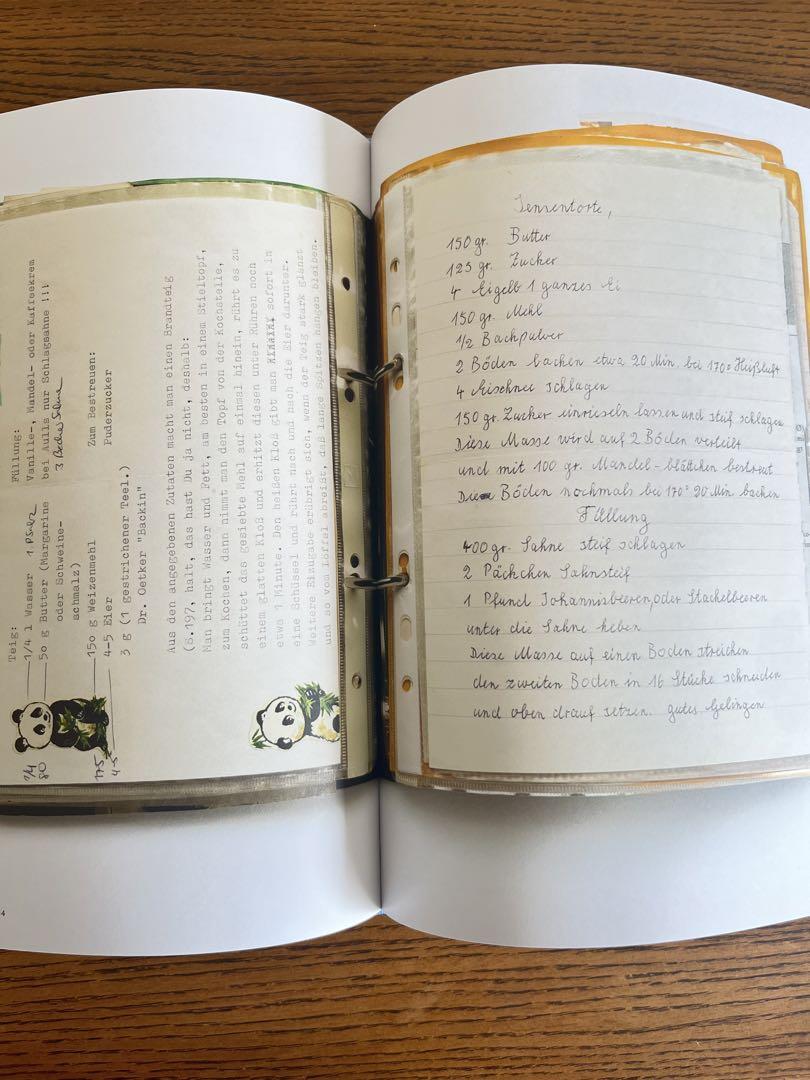 Teig:
1/4 l Wasser 1 P Salz
50 g Butter (Margarine
oder Schweine-
schmalz)
150 g Weizenmehl
4-5 Eier
3 g (1 gestrichener Teel.)
Dr. Oetker "Backin"
1/4
80
175
4-5
Füllung:
Vanille-, Mandel- oder Kaffeekrem
bei Aulls nur Schlagsahne !!!
3 Becher Sahne
Zum Bestreuen:
Puderzucker
Aus den angegebenen Zutaten macht man einen Brandteig
(S.197, halt, das hast Du ja nicht, deshalb:
Man bringt Wasser und Fett, am besten in einem Stieltopf,
zum Kochen, dann nimmt man den Topf von der Kochstelle,
schüttet das gesiebte Mehl auf einmal hinein, rührt es zu
einem glatten Kloß und erhitzt diesen unter Rühren noch
etwa 1 Minute. Den heißen Kloß gibt man sofort in
eine Schüssel und rührt nach und nach die Eier darunter.
Weitere Eizugabe erübrigt sich, wenn der Teig stark glänzt
und so vom Löffel abreißt, daß lange Spitzen hängen bleiben.
4
150 gr. Butter
125 gr. Zucker
4 Eigelb 1 ganzes Ei
150 gr. Mehl
1/2 Backpulver
2 Böden backen etwa 20 Min. bei 170° Heißluft
4 Eischnei schlagen
150 gr. Zucker einrieseln lassen und steif schlagen
Diese Masse wird auf 2 Böden verteilt
und mit 100 gr. Mandel-blättchen bestreut
Die Böden nochmals bei 170° 20 Min. backen
Füllung
400 gr. Sahne steif schlagen
2 Päckchen Sahnsteif
1 Pfund Johannisbeeren, oder Stachelbeeren
unter die Sahne heben
Diese Masse auf einen Boden streichen
den zweiten Boden in 16 Stücke schneiden
und oben drauf setzen. gutes Gelingen